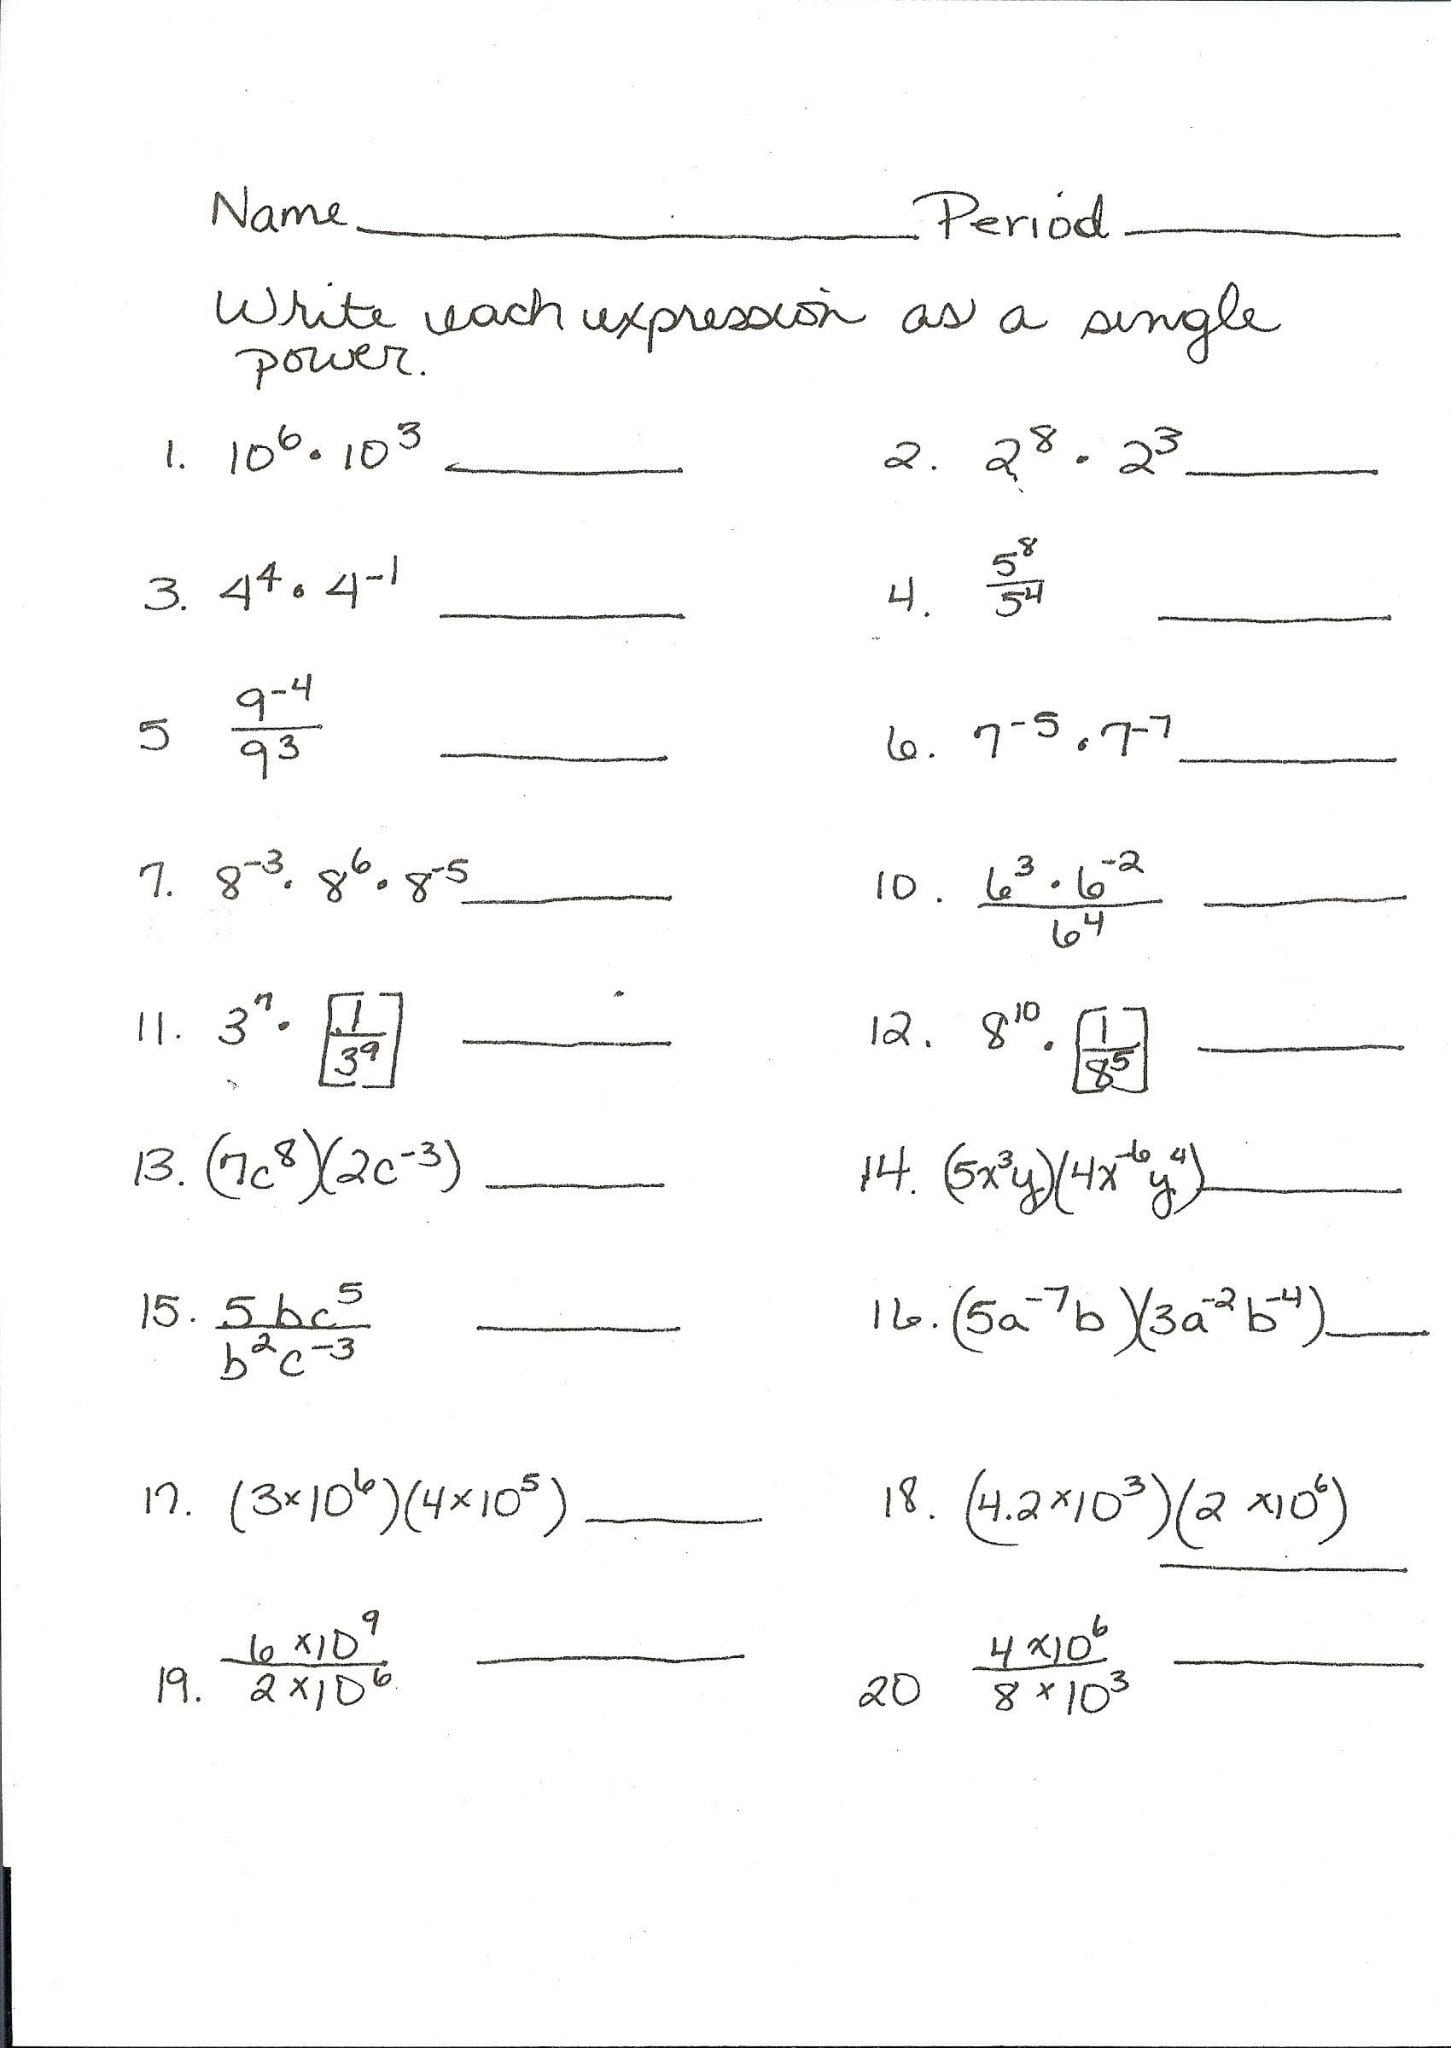 Name ____________ Period ________
Write each expression as a single
power.
1. 10⁶ · 10³ ______ 2. 2⁸ · 2³ ______
3. 4⁴ · 4⁻¹ ______ 4. 5⁸/5⁴ ______
5 9⁻⁴/9³ ______ 6. 7⁻⁵ · 7⁻⁷ ______
7. 8⁻³ · 8⁶ · 8⁻⁵ ______ 10. 6³ · 6⁻²/6⁴ ______
11. 3⁷ · [1/3⁹] ______ 12. 8¹⁰ · [1/8⁵] ______
13. (7c⁸)(2c⁻³) ______ 14. (5x³y)(4x⁻⁶y⁴) ______
15. 5bc⁵/b²c⁻³ ______ 16. (5a⁻⁷b)(3a⁻²b⁻⁴) ______
17. (3×10⁶)(4×10⁵) ______ 18. (4.2×10³)(2 ×10⁶) ______
19. 6 ×10⁹/2 ×10⁶ ______ 20 4 ×10⁶/8 × 10³ ______